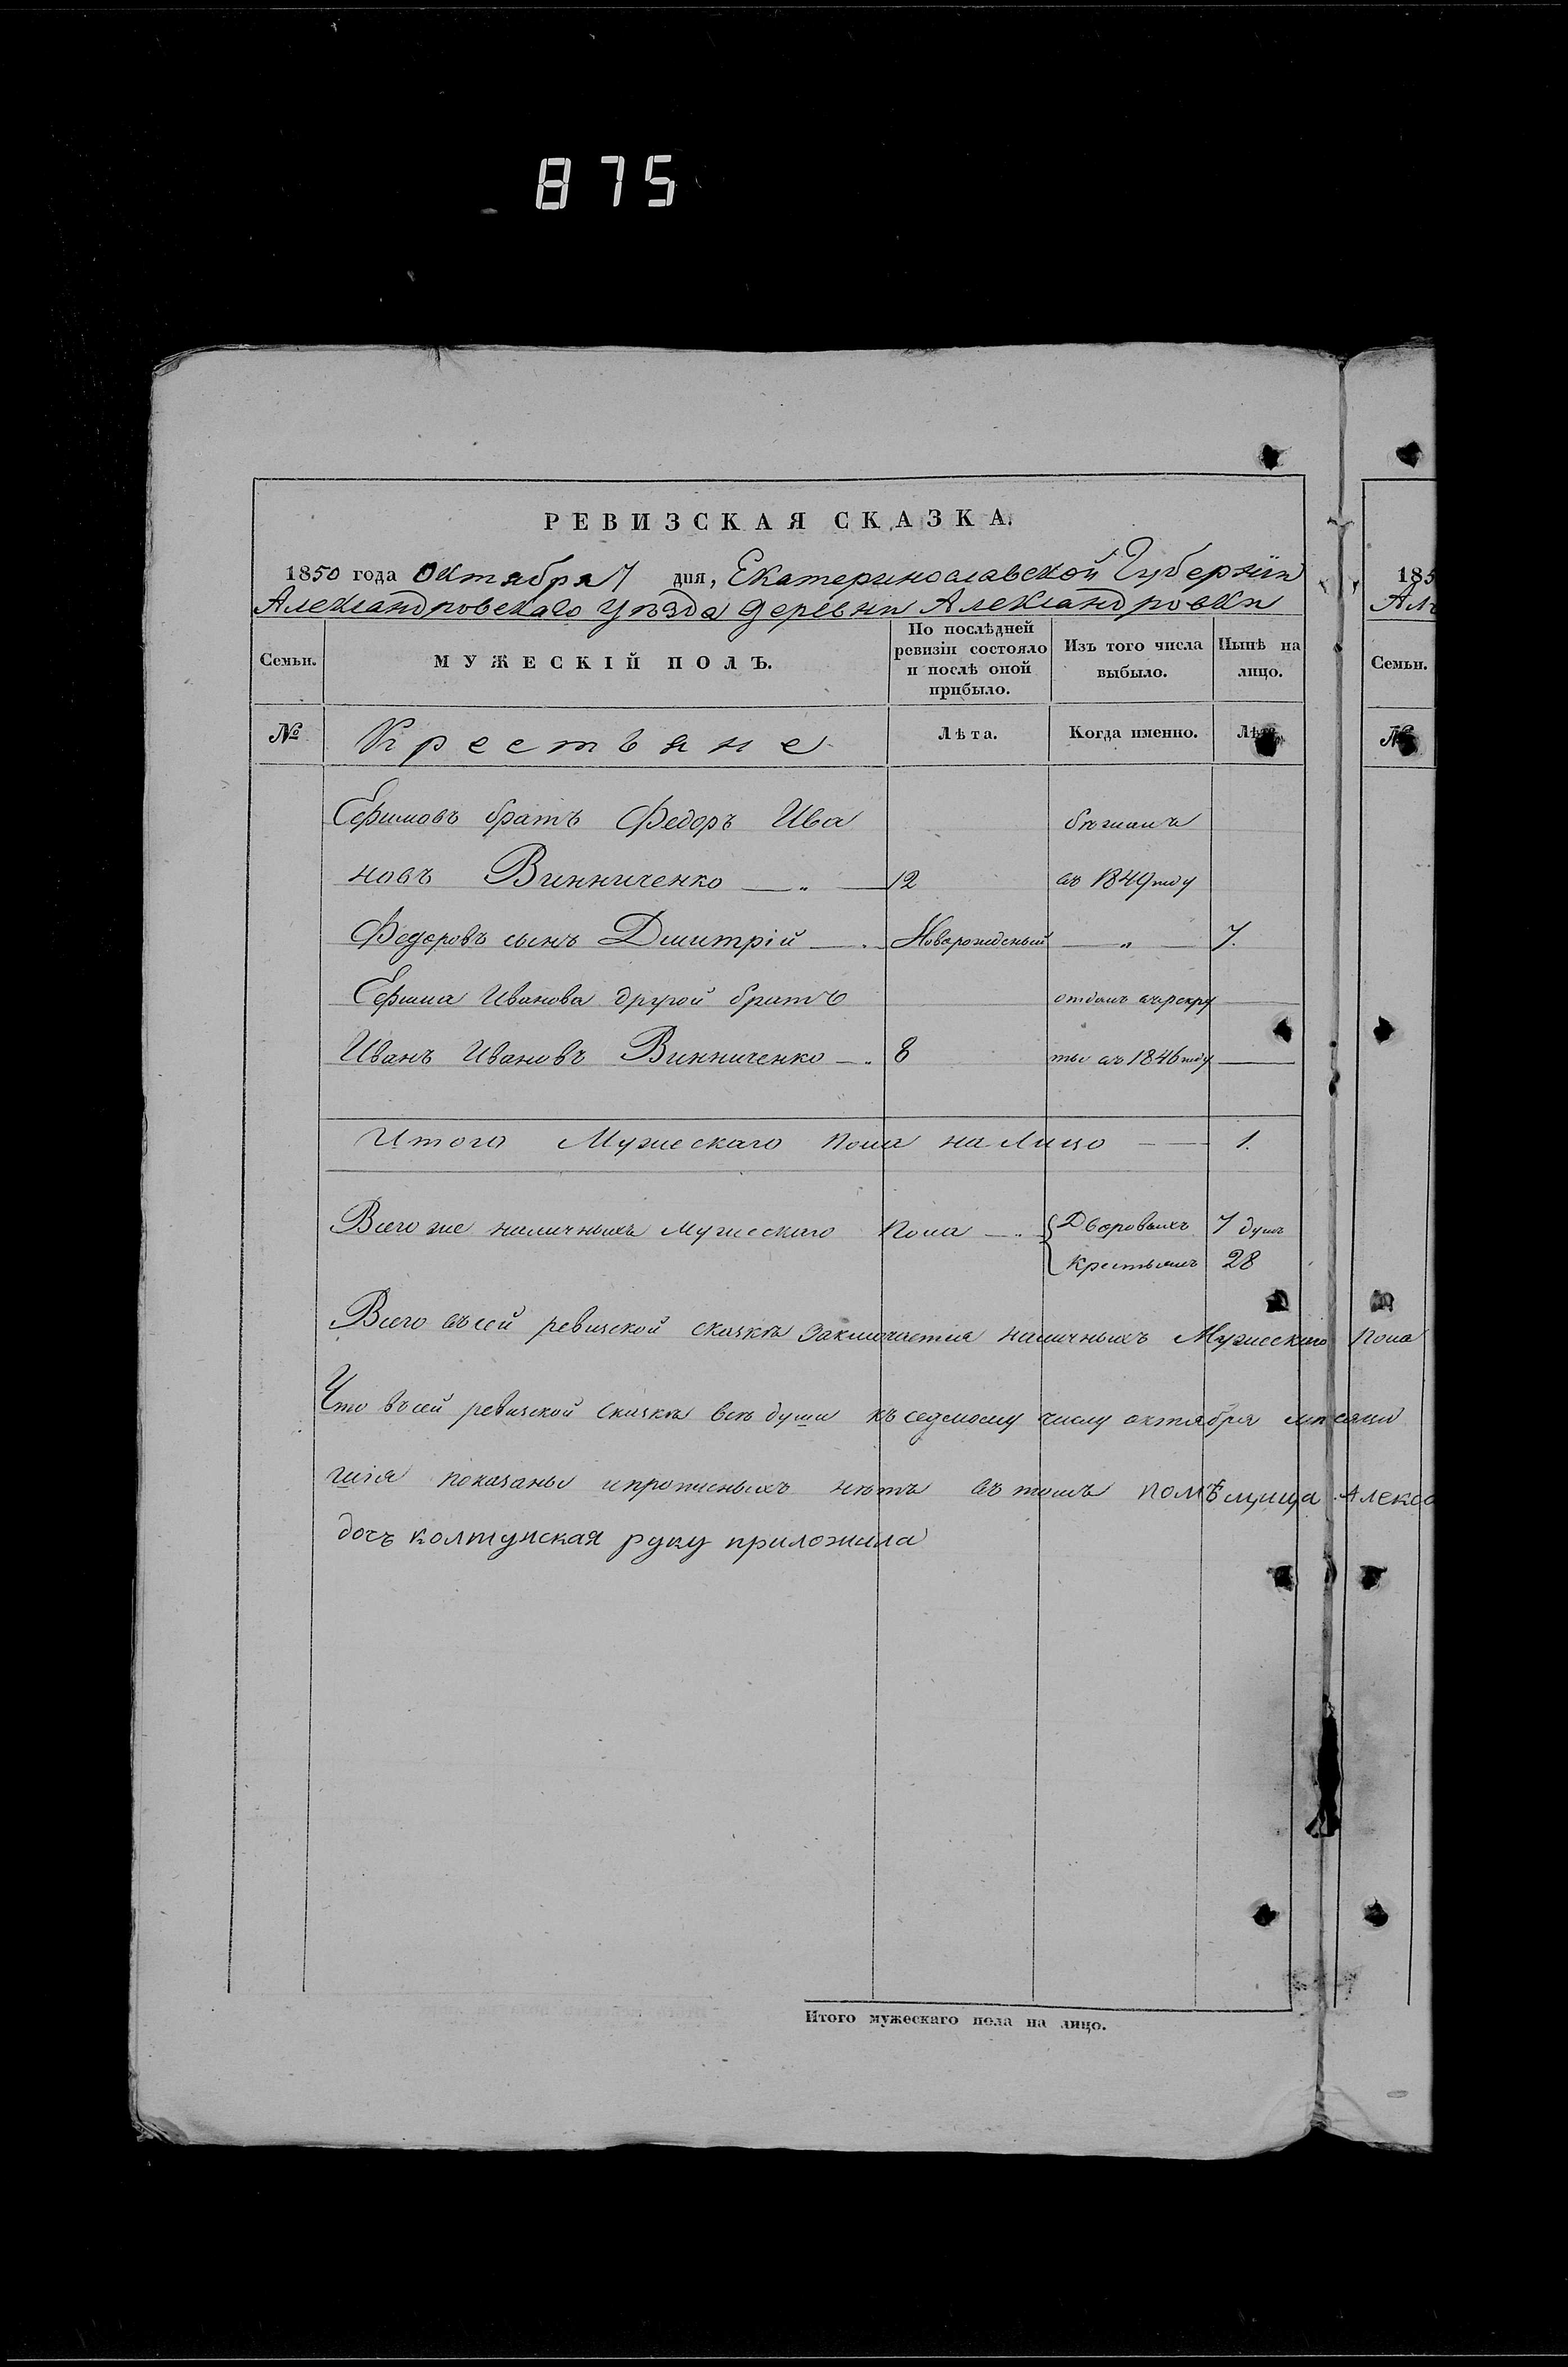 875
РЕВИЗСКАЯ СКАЗКА.
1850 года Октября 7 дня, Екатеринославской Губерніи
Александровскаго уѣзда деревни Александровки
185
Семьи.
МУЖЕСКІЙ ПОЛЪ.
По послѣдней ревизіи состояло и послѣ оной прибыло.
Изъ того числа выбыло.
Нынѣ на лицо.
Семьи.
№ Крестьяне Лѣта. Когда именно. Лѣта.
№
Ефимовъ братъ Федоръ Ива бѣжалъ
новъ Винниченко — „ — 12 въ 1849 году
Федоровъ сынъ Дмитрій — „ Новорожденый — „ — 7.
Ефима Иванова другой братъ отданъ въ рекру
Иванъ Ивановъ Винниченко — „ 8 ты въ 1846 году —
Итого Мужескаго пола на Лицо — 1.
Всего же наличныхъ мужескаго пола — „ Дворовыхъ 7 душъ
Крестьянъ 28
Всего въ сей ревизской сказкѣ заключается наличныхъ Мужескаго пола
Что въ сей ревизской сказкѣ всѣ души къ седмому числу октября мѣсяца
показаны и прописныхъ нѣтъ въ томъ помѣщица Алекса
колтунская руку приложила
Итого мужескаго пола на лицо.